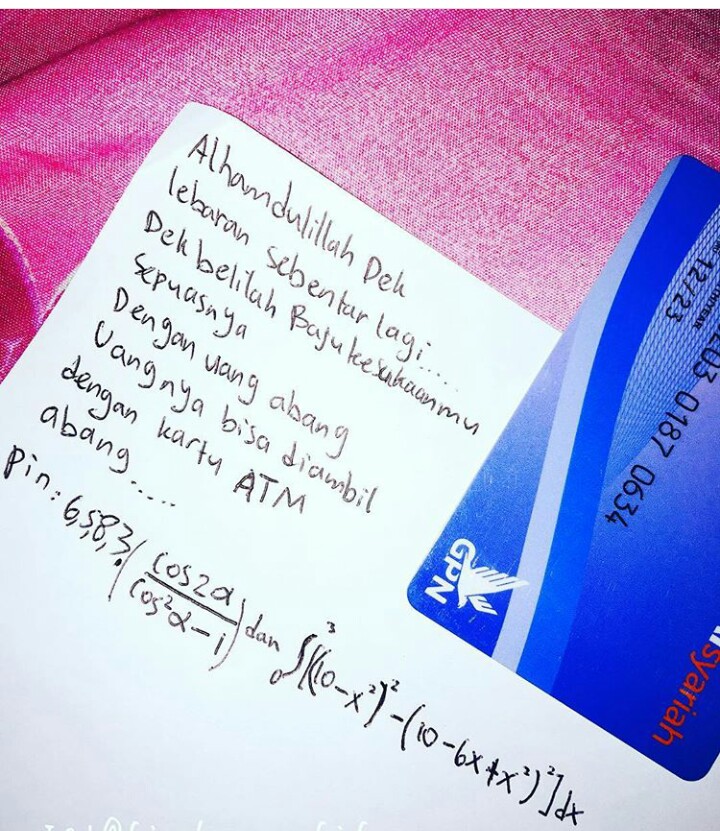 Alhamdulillah Dek
lebaran sebentar lagi.....
Dek belilah Baju kesukaanmu
sepuasnya
Dengan uang abang
Uangnya bisa diambil
dengan kartu ATM
abang.....
pin: 6,5,8,3,(cos2α / cos²α-1) dan ₀∫³[(10-x²)²-(10-6x+x²)²]dx
12/23
203 0187 0634
GPN
syariah